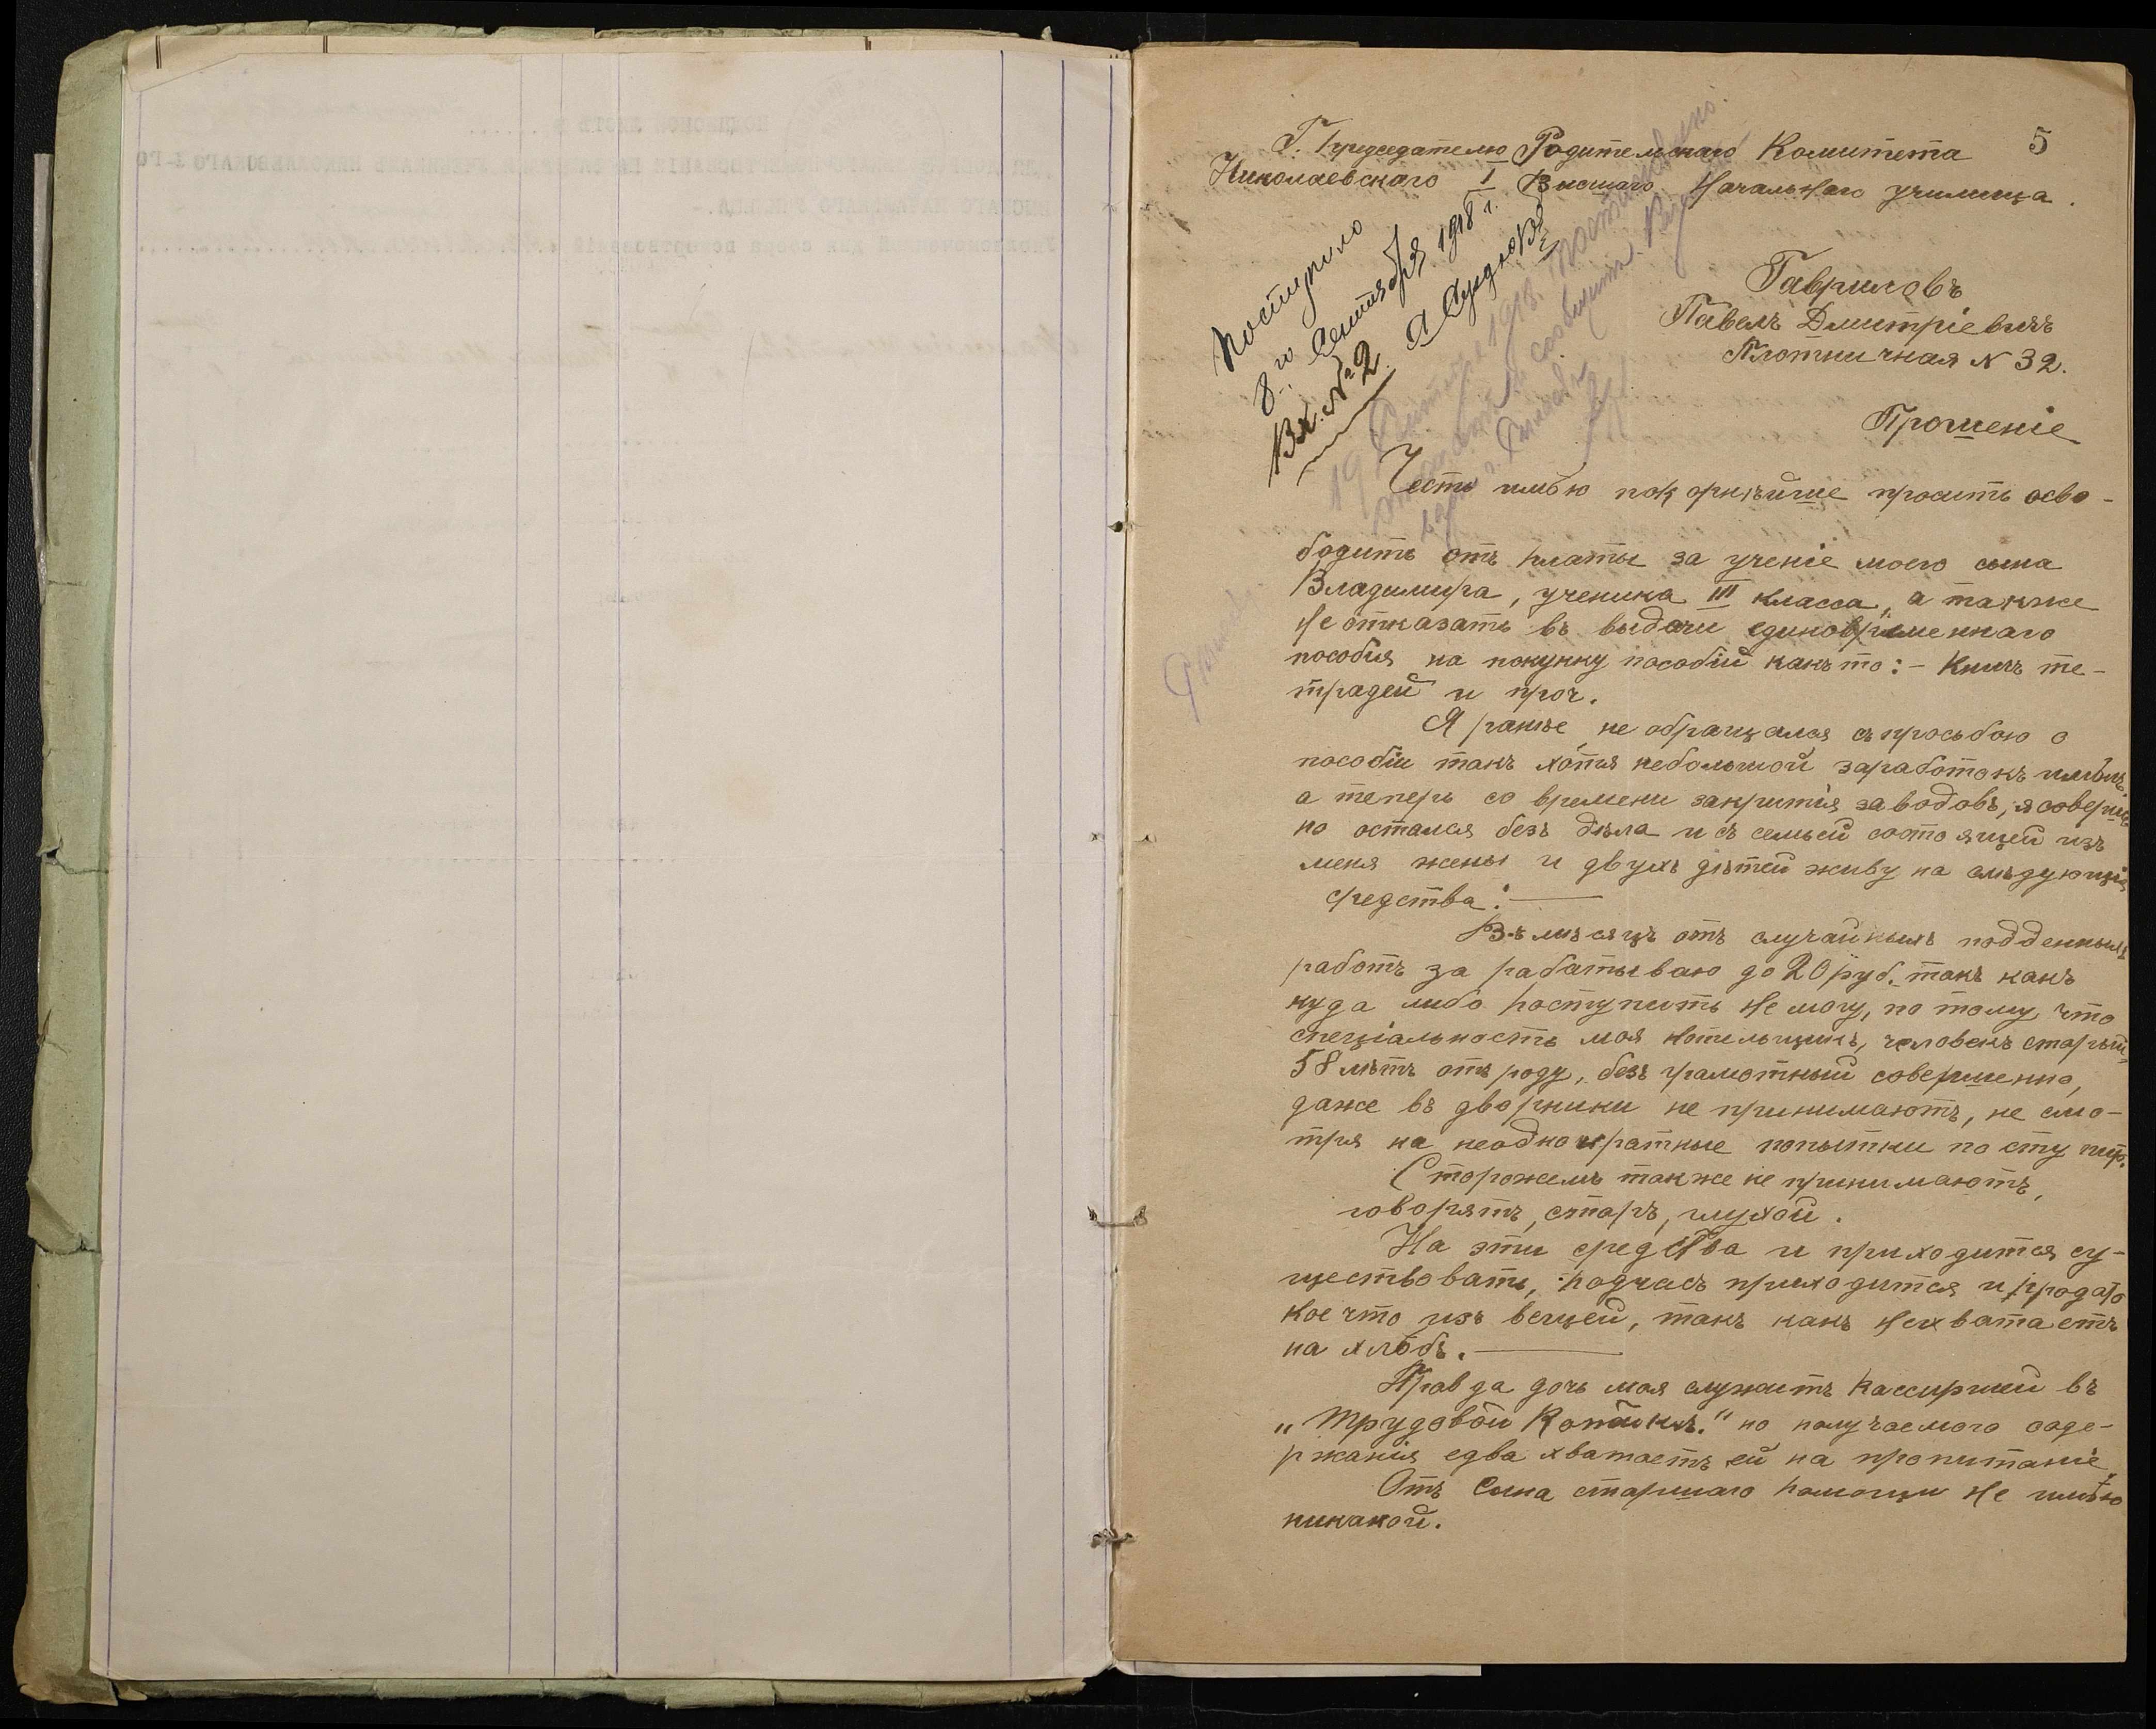 5
Г. Председателю Родительскаго Комитета
Николаевскаго I Высшаго Начальнаго училища.
Поступило
8го Сентября 1918 г.
Вх. № 2.
Гавриловъ
Павелъ Дмитріевичъ
Плотничная N 32.
Прошеніе
Честь имѣю покорнѣйше просить осво-
бодить отъ платы за ученіе моего сына
Владимира, ученика III класса, а также
не отказать въ выдачи единовременнаго
пособія на покупку пособій какъ то:- Книгъ те-
традей и проч.
Я ранѣе не обращался съ просьбою о
пособіи такъ хотя небольшой заработокъ имѣлъ,
а теперь со времени закрытія заводовъ, я соверше
но остался безъ дѣла и съ семьей состоящей изъ
меня жены и двухъ дѣтей живу на слѣдующія
средства: —
Въ мѣсяцъ отъ случайныхъ подденныхъ
работъ за рабатываю до 20 руб. такъ какъ
куда либо поступить не могу, по тому что
спеціальность моя котельщикъ, человекъ старый,
58 лѣтъ отъ роду, безъ грамотный совершенно,
даже въ дворники не принимаютъ, не смо-
тря на неоднократные попытки по сту пить.
Сторожемъ также не принимаютъ,
говорятъ, старъ, глухой.
На эти средства и приходится су-
ществовать, подчасъ приходится и продать
кое что изъ вещей, такъ какъ нехватаетъ
на хлѣбъ. —
Правда дочь моя служитъ Кассиршей въ
„Трудовой Копѣйкѣ." но получаемого соде-
ржанія едва хватаетъ ей на пропитаніе.
Отъ Сына старшаго помощи не имѣю
никакой.